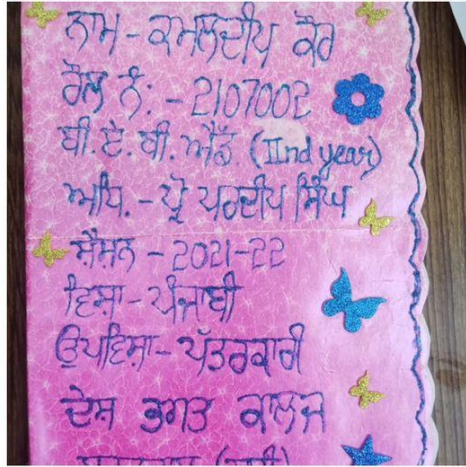 ਨਾਮ - ਕਮਲਦੀਪ ਕੌਰ
ਰੌਲ ਨੰ: - 2107002
ਬੀ.ਏ.ਬੀ.ਐੱਡ. (IInd year)
ਅਧਿ. - ਪ੍ਰੋ ਪਰਦੀਪ ਸਿੰਘ
ਸ਼ੈਸ਼ਨ - 2021-22
ਵਿਸ਼ਾ - ਪੰਜਾਬੀ
ਉਪਵਿਸ਼ਾ - ਪੱਤਰਕਾਰੀ
ਦੇਸ਼ ਭਗਤ ਕਾਲਜ